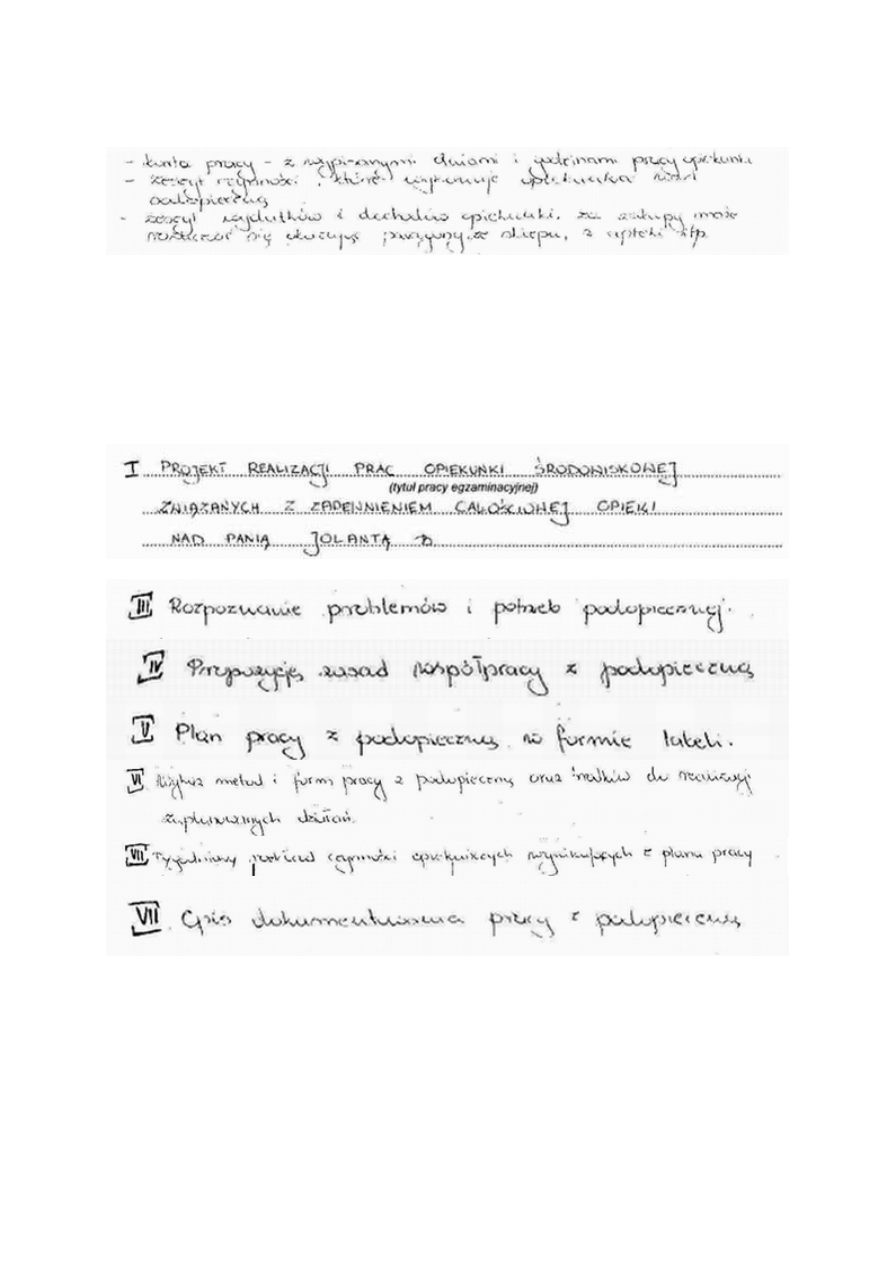 - karta pracy - z wypisanymi dniami i godzinami pracy opiekunki
- zeszyt czynności, które wykonuje opiekunka
podopieczną
- zeszyt wydatków i opiekunki, za zakupy może
rozliczać się ze sklepu, z apteki itp.
I PROJEKT REALIZACJI PRAC OPIEKUNKI ŚRODOWISKOWEJ
(tytuł pracy egzaminacyjnej)
ZWIĄZANYCH Z ZAPEWNIENIEM CAŁOŚCIOWEJ OPIEKI
NAD PANIĄ JOLANTĄ
III Rozpoznanie problemów i potrzeb podopiecznej.
IV Propozycję zasad współpracy z podopieczną
V Plan pracy z podopieczną w formie tabeli.
VI Wybór metod i form pracy z podopieczną oraz środków do realizacji
zaplanowanych działań.
VII Tygodniowy rozkład czynności opiekuńczych wynikających z planu pracy
VII Opis dokumentowania pracy z podopieczną